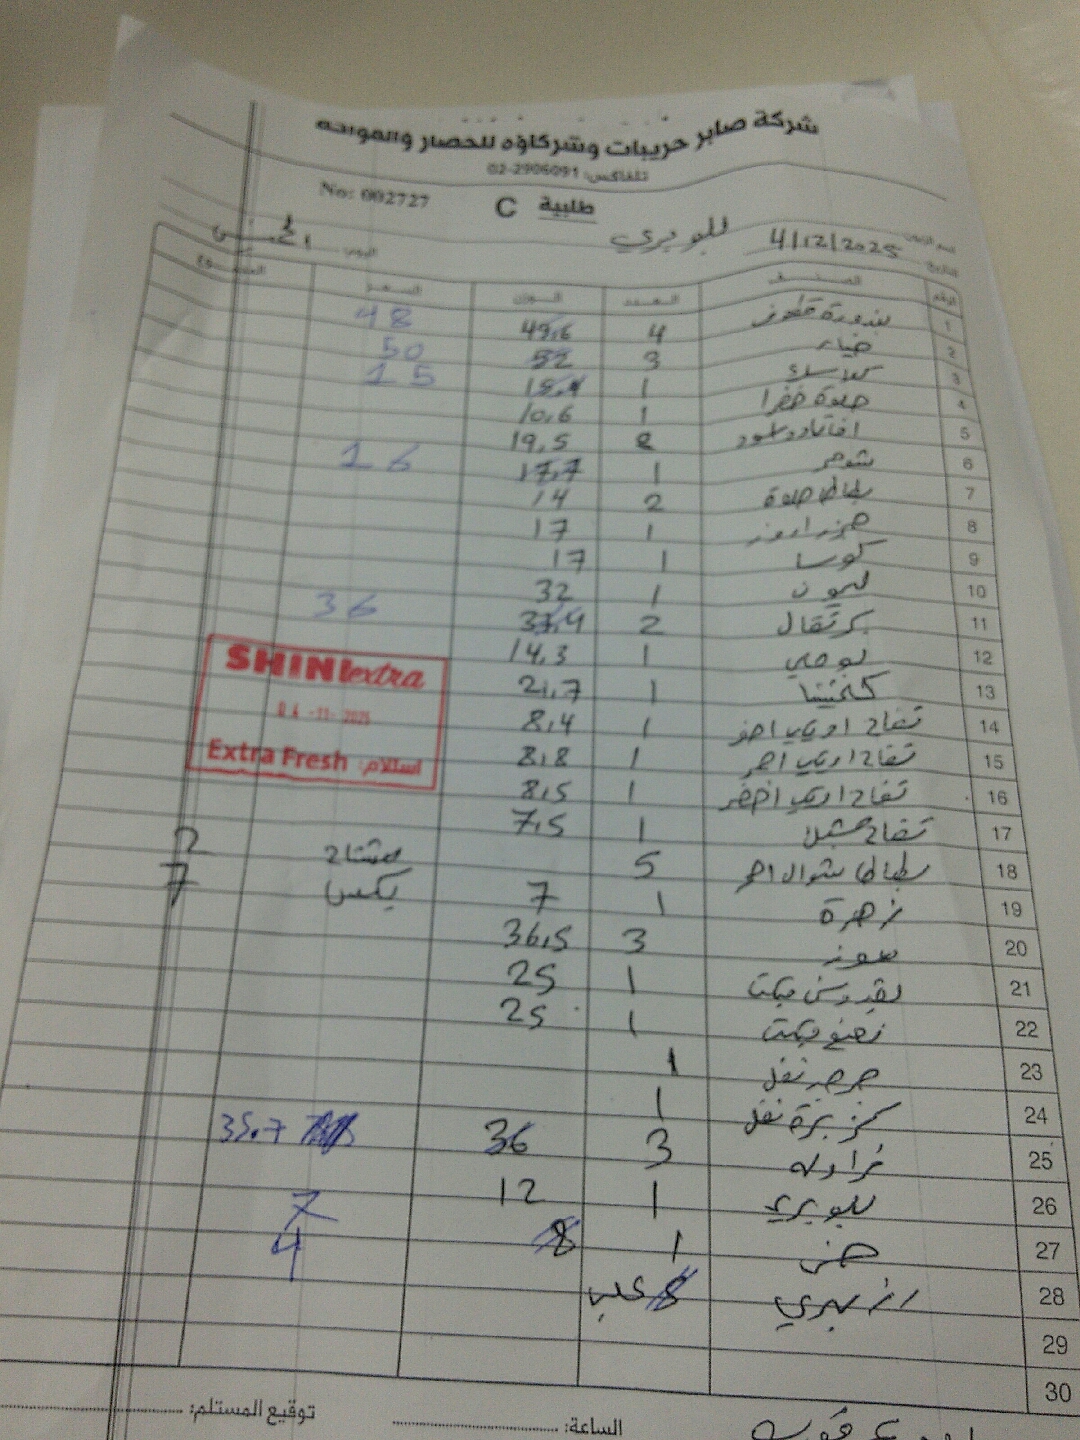 شركة صابر حريبات وشركاؤه للخضار والفواكه
تلفاكس: 02-2906091
طلبية C No: 002727
التاريخ 4/12/2025 للوبيري اليوم
الرقم الصنف العدد الوزن السعر المجموع
1 بندورة 4 49,6 48
2 خيار 3 52 50
3 1 15,4 15
4 1 10,6
5 19,5
6 شومر 1 17,7 16
7 بطاطا حلوة 2 14
8 1 17
9 كوسا 1 17
10 ليمون 1 32
11 برتقال 2 37,9 36
12 بوملي 1 14,3
13 كلمنتينا 1 21,7
14 تفاح 1 8,4
15 تفاح احمر 1 8,8
16 تفاح اخضر 1 8,5
17 تفاح 1 7,5
18 بطاطا شوال احمر 5 مشتاح 2
19 زهرة 1 7 بكس 7
20 موز 3 36,5
21 بقدونس بيكت 1 25
22 نعنع بيكت 1 25
23 جرجير نفل 1
24 كزبرة نفل 1
25 فراوله 3 36 35.7
26 بلوبيري 1 12
27 خس 1 8 7
28 رازبيري 8 علب 4
29
30
SHINI extra
04 -11- 2025
Extra Fresh استلام:
الساعة: توقيع المستلم: